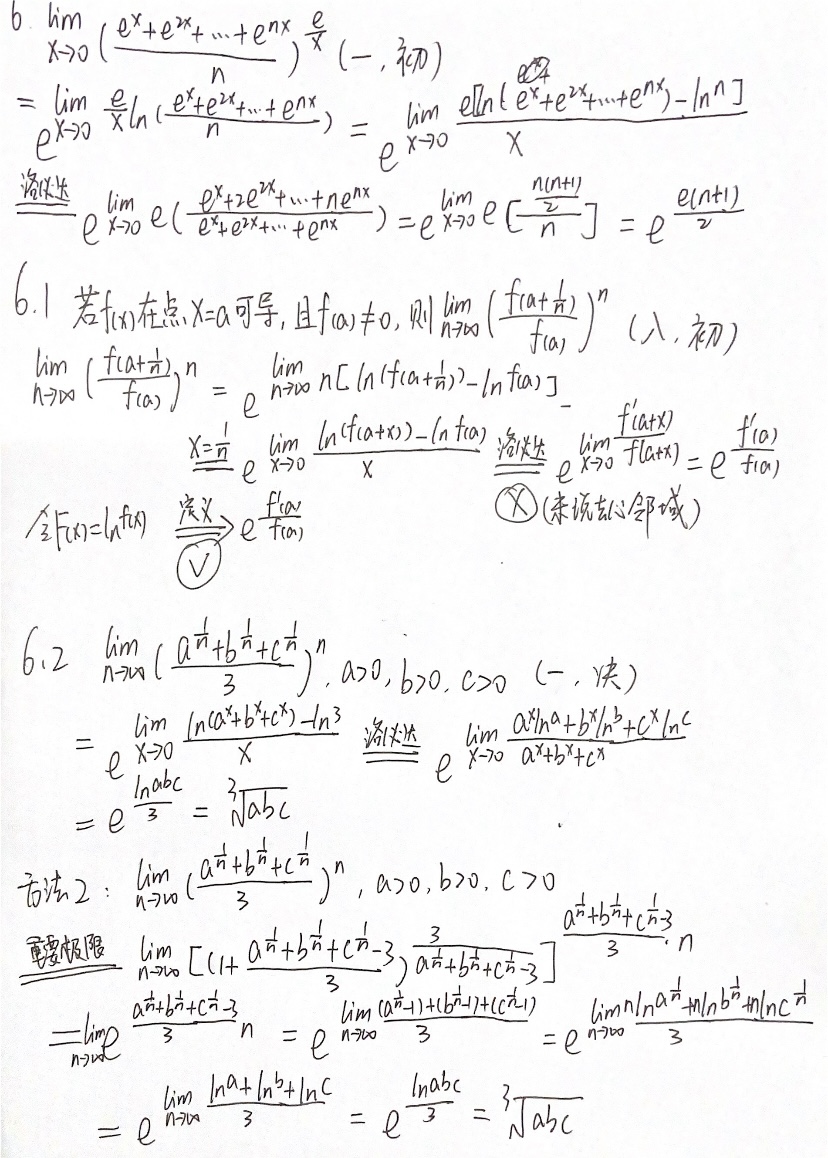 6. lim x→0 ((e^x+e^2x+…+e^nx)/n)^(e/x) (一, 初)
= e^(lim x→0 (e/x) ln((e^x+e^2x+…+e^nx)/n)) = e^(lim x→0 e[ln(e^x+e^2x+…+e^nx)-ln n]/x)
洛必达 e^(lim x→0 e((e^x+2e^2x+…+ne^nx)/(e^x+e^2x+…+e^nx))) = e^(lim x→0 e[(n(n+1)/2)/n]) = e^(e(n+1)/2)
6.1 若f(x)在点x=a可导, 且f(a)≠0, 则 lim n→∞ (f(a+1/n)/f(a))^n (入, 初)
lim n→∞ (f(a+1/n)/f(a))^n = e^(lim n→∞ n[ln(f(a+1/n))-ln f(a)])
x=1/n e^(lim x→0 (ln(f(a+x))-ln f(a))/x) 洛必达 e^(lim x→0 f'(a+x)/f(a+x)) = e^(f'(a)/f(a))
令F(x)=ln f(x) 定义 e^(f'(a)/f(a)) X (未说去心邻域)
√
6.2 lim n→∞ ((a^(1/n)+b^(1/n)+c^(1/n))/3)^n, a>0, b>0, c>0 (一, 决)
= e^(lim x→0 (ln(a^x+b^x+c^x)-ln3)/x) 洛必达 e^(lim x→0 (a^x ln a+b^x ln b+c^x ln c)/(a^x+b^x+c^x))
= e^(ln abc/3) = ³√abc
方法2: lim n→∞ ((a^(1/n)+b^(1/n)+c^(1/n))/3)^n, a>0, b>0, c>0
重要极限 lim n→∞ [(1+(a^(1/n)+b^(1/n)+c^(1/n)-3)/3)^(3/(a^(1/n)+b^(1/n)+c^(1/n)-3))]^((a^(1/n)+b^(1/n)+c^(1/n)-3)/3·n)
= lim n→∞ e^((a^(1/n)+b^(1/n)+c^(1/n)-3)/3 n) = e^(lim n→∞ ((a^(1/n)-1)+(b^(1/n)-1)+(c^(1/n)-1))/3) = e^(lim n→∞ (n ln a^(1/n)+n ln b^(1/n)+n ln c^(1/n))/3)
= e^(lim n→∞ (ln a+ln b+ln c)/3) = e^(ln abc/3) = ³√abc